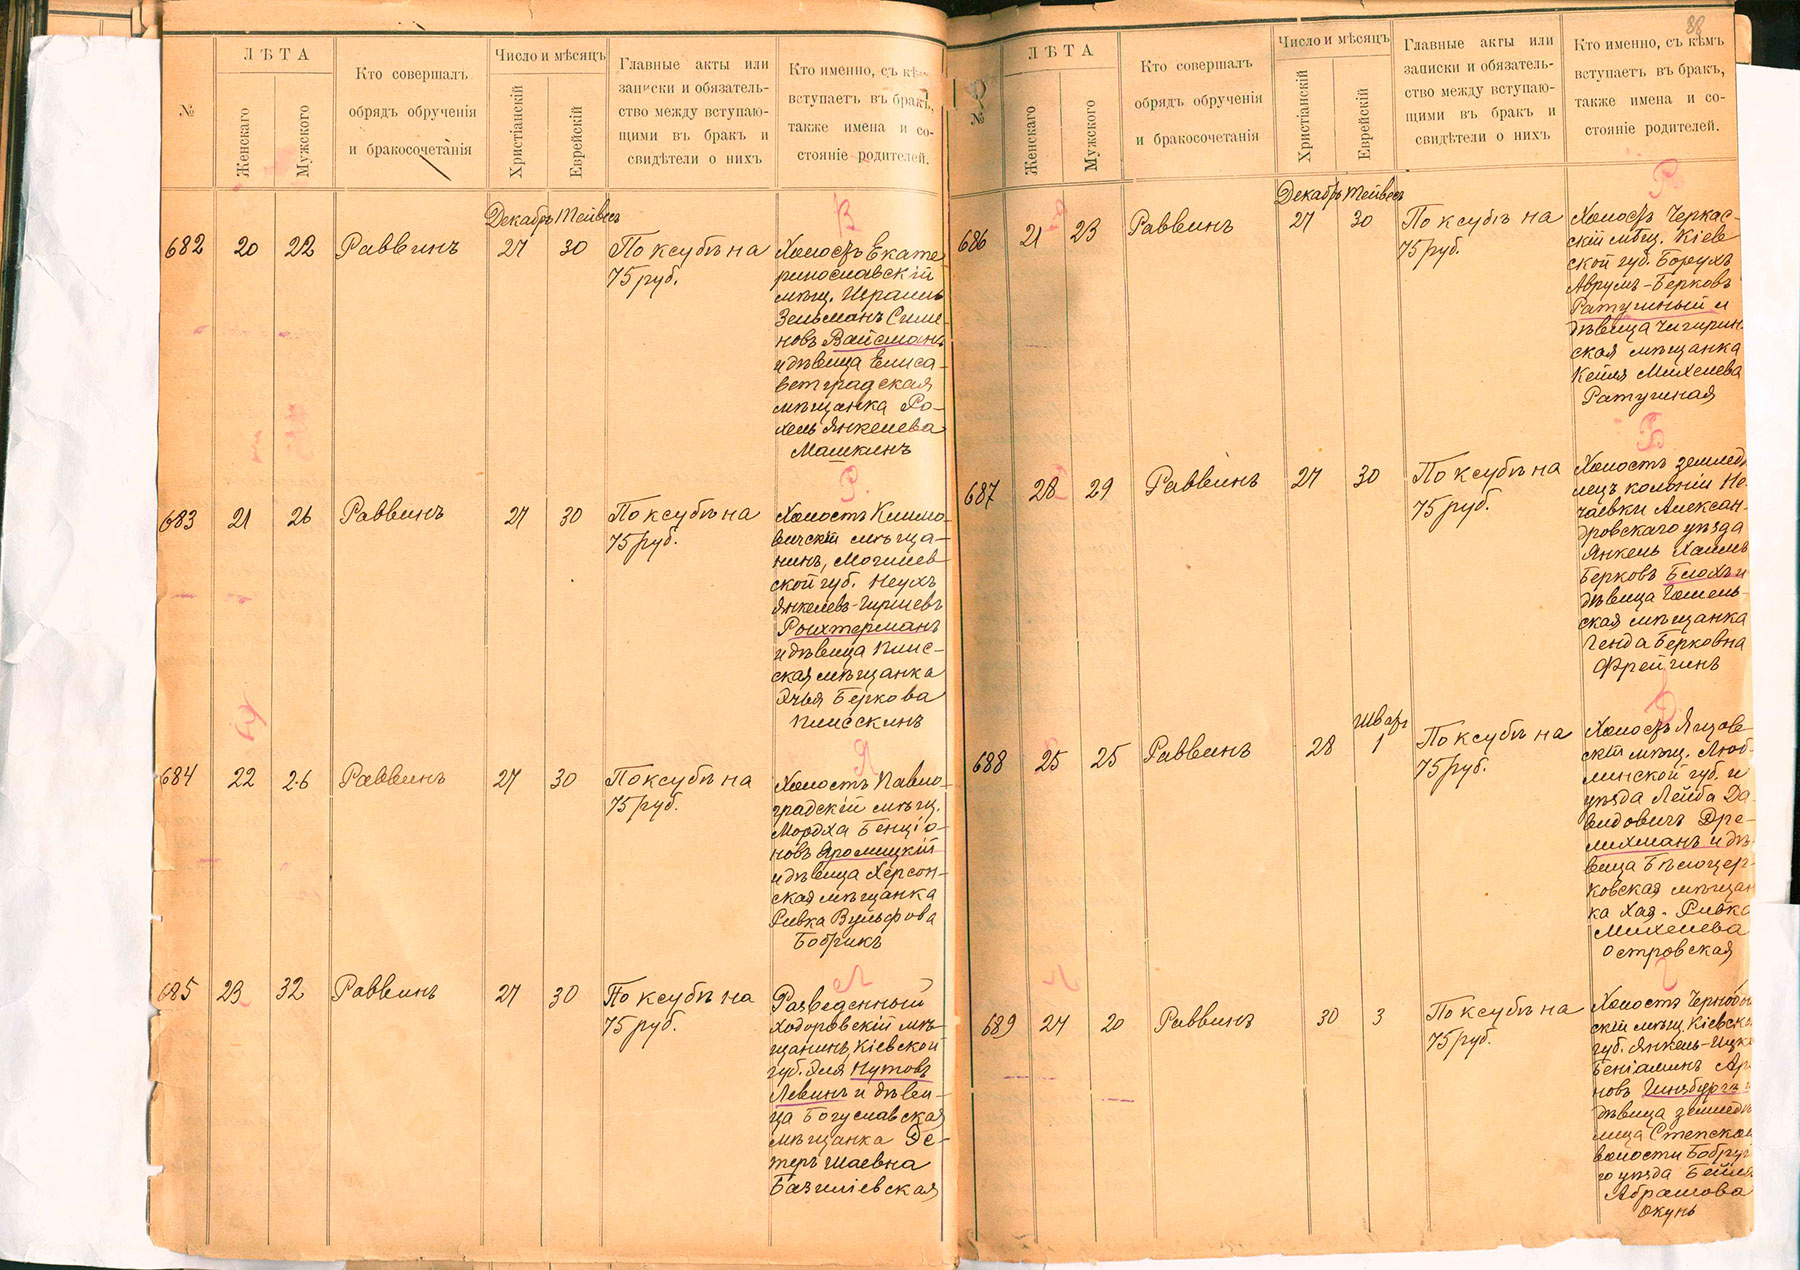 №
ЛѢТА
Женскаго
Мужского
Кто совершалъ
обрядъ обрученія
и бракосочетанія
Число и мѣсяцъ
Христіанскій
Еврейскій
Главные акты или
записки и обязатель-
ство между вступаю-
щими въ бракъ и
свидѣтели о нихъ
Кто именно, съ кѣмъ
вступаетъ въ бракъ,
также имена и со-
стояніе родителей.
Декабрь Тейвесъ
В
682 20 22 Раввинъ 27 30 По ксубѣ на
75 руб.
Холостъ Екате
ринославскій
мѣщ. Израиль
Зельманъ Сими
новъ Вайсманъ
и дѣвица Елиса-
ветградская
мѣщанка Ро-
хель Янкелева
Машкинъ
Р
683 21 26 Раввинъ 27 30 По ксубѣ на
75 руб.
Холостъ Климо-
вичскій мѣща-
нинъ, Могилев
ской губ. Неухъ
Янкелевъ-Гиршевъ
Роихтерманъ
и дѣвица Плис-
ская мѣщанка
Эчья Беркова
Плисскинъ
Я
684 22 26 Раввинъ 27 30 По ксубѣ на
75 руб.
Холостъ Павло-
градскій мѣщ.
Мордха Бенціо-
новъ Яромицкій
и дѣвица Херсон-
ская мѣщанка
Ривка Вульфова
Бобрикъ
Л
685 23 32 Раввинъ 27 30 По ксубѣ на
75 руб.
Разведенный
Ходоровскій мѣ-
щанинъ, Кіевской
губ. Эля Нутовъ
Левинъ и дѣви-
ца Богуславская
мѣщанка Эс-
теръ Шаевна
Базиліевская
88
№
ЛѢТА
Женскаго
Мужского
Кто совершалъ
обрядъ обрученія
и бракосочетанія
Число и мѣсяцъ
Христіанскій
Еврейскій
Главные акты или
записки и обязатель-
ство между вступаю-
щими въ бракъ и
свидѣтели о нихъ
Кто именно, съ кѣмъ
вступаетъ въ бракъ,
также имена и со-
стояніе родителей.
Декабрь Тейвесъ
Р
686 21 23 Раввинъ 27 30 По ксубѣ на
75 руб.
Холостъ Черкас-
скій мѣщ. Кіев
ской губ. Борухъ
Аврумъ-Берковъ
Ратушный и
дѣвица Чигирин
ская мѣщанка
Кейля Михелева
Ратушная
Б
687 28 29 Раввинъ 27 30 По ксубѣ на
75 руб.
Холостъ землед
лецъ колоніи Не
чаевки Алексан-
дровскаго уѣзда
Янкель Хаимъ
Берковъ Блохъ и
дѣвица Гомель-
ская мѣщанка
Генда Берковна
Фрейгинъ
Д
Шватъ
688 25 25 Раввинъ 28 1 По ксубѣ на
75 руб.
Холостъ Яцове
скій мѣщ. Люб-
линской губ. и
уѣзда Лейба Да-
видовичъ Дре-
лихманъ и дѣ-
вица Бѣлоцер-
ковская мѣщан
ка Хая-Ривка
Михелева
Островская
Г
689 24 20 Раввинъ 30 3 По ксубѣ на
75 руб.
Холостъ Чернобы
скій мѣщ. Кіевско
губ. Янкель-Ицка
Беніаминъ Ар
новъ Гинзбургъ и
дѣвица землед
лица Степской
волости Бобруй
го уѣзда Бейля
Абрамова
Окунь